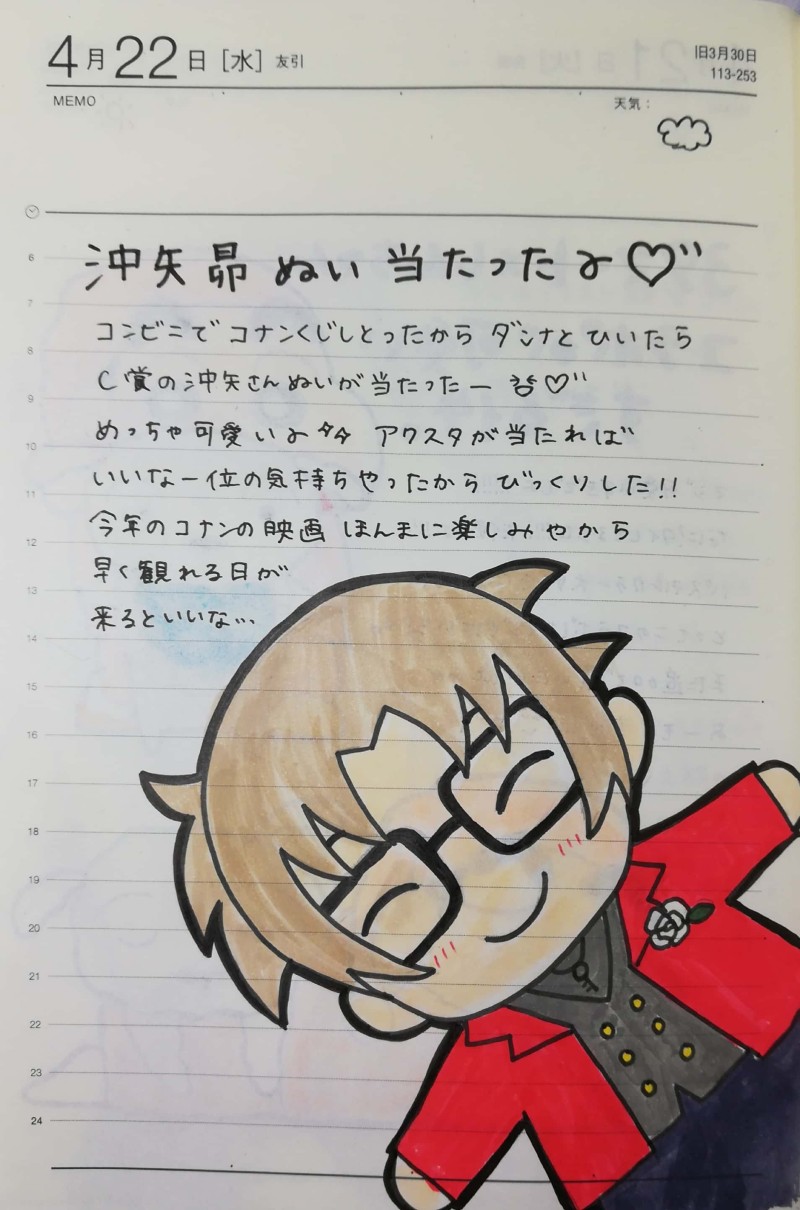 4月22日[水] 友引
旧3月30日
113-253
MEMO
天気：
沖矢昴 ぬい 当たったよ♡
コンビニで コナンくじしとったから ダンナと ひいたら
C賞の沖矢さんぬいが当たったー
めっちゃ可愛いよ アクスタが当たれば
いいなー位の気持ちやったから びっくりした!!
今年のコナンの映画 ほんまに楽しみやから
早く観れる日が
来るといいな…
6
7
8
9
10
11
12
13
14
15
16
17
18
19
20
21
22
23
24